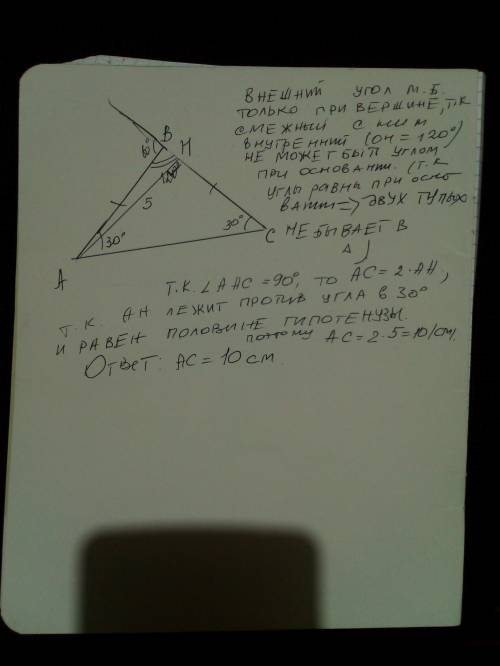 ВНЕШНИЙ УГОЛ М.Б.
ТОЛЬКО ПРИ ВЕРШИНЕ, Т.К
СМЕЖНЫЙ С НИМ
ВНУТРЕННИЙ (ОН = 120°)
НЕ МОЖЕТ БЫТ УГЛОМ
ПРИ ОСНОВАНИИ. (Т.К
УГЛЫ РАВНЫ ПРИ ОСНО
ВАНИИ => ДВУХ ТУПЫХ
НЕ БЫВАЕТ В
Δ )
B
60°
H
120°
5
30°
30°
C
A
Т.К. ∠AHC = 90°, ТО AC = 2·AH,
Т.К. AH ЛЕЖИТ ПРОТИВ УГЛА В 30°
И РАВЕН ПОЛОВИНЕ ГИПОТЕНУЗЫ.
поэтому AC = 2·5 = 10 (см).
Ответ: AC = 10 см.